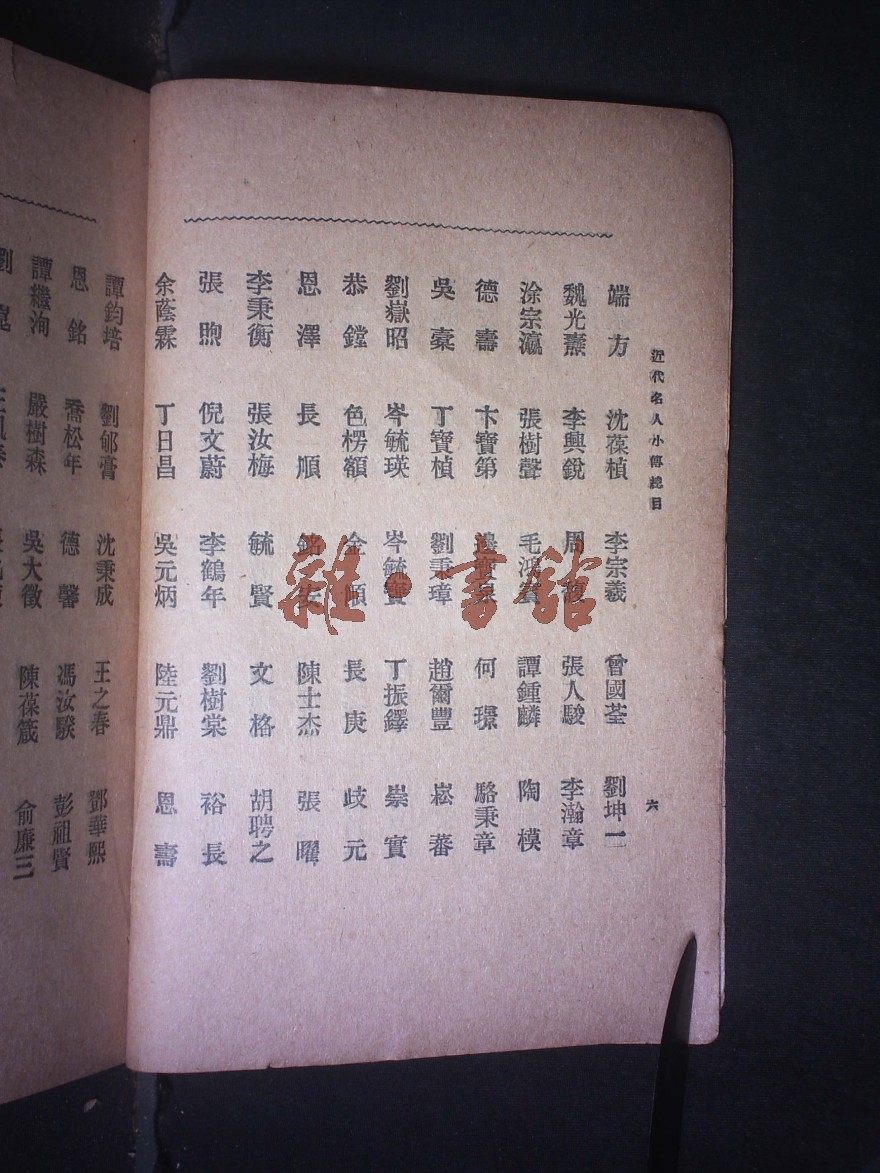 近代名人小傳總目
六
端方 沈葆楨 李宗羲 曾國荃 劉坤一
魏光燾 李興銳 周馥 張人駿 李瀚章
涂宗瀛 張樹聲 毛鴻賓 譚鍾麟 陶模
德壽 卞寶第 邊寶泉 何璟 駱秉章
吳棠 丁寶楨 劉秉璋 趙爾豐 崧蕃
劉嶽昭 岑毓瑛 岑毓寶 丁振鐸 崇實
恭鏜 色楞額 金順 長庚 歧元
恩澤 長順 銘安 陳士杰 張曜
李秉衡 張汝梅 毓賢 文格 胡聘之
張煦 倪文蔚 李鶴年 劉樹棠 裕長
余蔭霖 丁日昌 吳元炳 陸元鼎 恩壽
譚鈞培 劉郇膏 沈秉成 王之春 鄧華熙
恩銘 喬松年 德馨 馮汝騤 彭祖賢
譚繼洵 嚴樹森 吳大徵 陳葆箴 俞廉三
劉
雜·書館